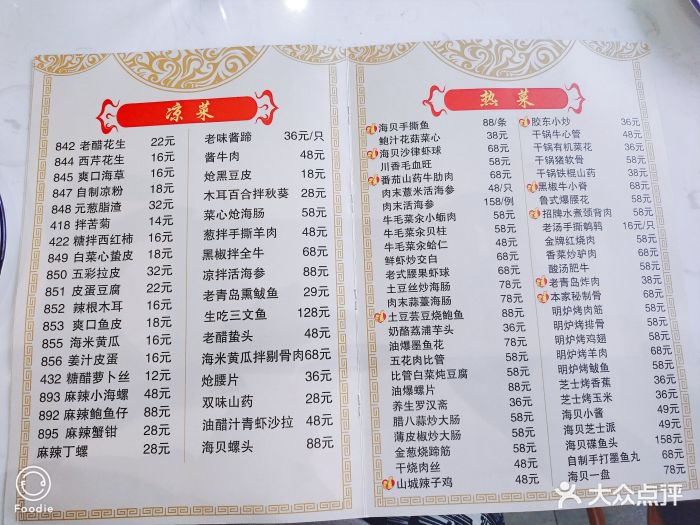 凉菜
842 老醋花生 22元
844 西芹花生 16元
845 爽口海草 16元
847 自制凉粉 18元
848 元葱脂渣 32元
418 拌苦菊 14元
422 糖拌西红柿 16元
849 白菜心蛰皮 18元
850 五彩拉皮 32元
851 皮蛋豆腐 22元
852 辣根木耳 16元
853 爽口鱼皮 18元
855 海米黄瓜 16元
856 姜汁皮蛋 16元
432 糖醋萝卜丝 12元
893 麻辣小海螺 48元
892 麻辣鲍鱼仔 88元
895 麻辣蟹钳 28元
麻辣丁螺 28元
老味酱蹄 36元/只
酱牛肉 48元
炝黑豆皮 18元
木耳百合拌秋葵 28元
菜心炝海肠 58元
葱拌手撕羊肉 48元
黑椒拌全牛 68元
凉拌活海参 58元
老青岛熏鲅鱼 29元
生吃三文鱼 128元
老醋蛰头 48元
海米黄瓜拌剔骨肉 68元
炝腰片 36元
双味山药 28元
油醋汁青虾沙拉 48元
海贝螺头 88元
热菜
海贝手撕鱼 88/条
鲍汁花菇菜心 38元
海贝沙律虾球 68元
川香毛血旺 58元
番茄山药牛肋肉 68元
肉末薏米活海参 48/只
肉末活海参 158/例
牛毛菜汆小蛎肉 58元
牛毛菜汆贝柱 58元
牛毛菜汆蛤仁 48元
鲜虾炒交白 68元
老式腰果虾球 68元
土豆丝炒海肠 78元
肉末蒜薹海肠 78元
土豆芸豆烧鲍鱼 88元
奶酪荔浦芋头 36元
油爆墨鱼花 78元
五花肉比管 58元
比管白菜炖豆腐 58元
油爆螺片 88元
养生罗汉斋 36元
腊八蒜炒大肠 58元
薄皮椒炒大肠 58元
金葱烧蹄筋 58元
干烧肉丝 48元
山城辣子鸡 48元
胶东小炒 36元
干锅牛心管 48元
干锅有机菜花 36元
干锅猪软骨 58元
干锅铁棍山药 36元
黑椒牛小脊 68元
鲁式爆腰花 58元
招牌水煮颈背肉 58元
老汤手撕鹌鹑 16元/只
金牌红烧肉 58元
香菜炒驴肉 68元
酸汤肥牛 58元
老青岛炸肉 38元
本家秘制骨 68元
明炉烤肉筋 58元
明炉烤排骨 58元
明炉烤鸡翅 58元
明炉烤羊肉 68元
明炉烤鲅鱼 58元
芝士烤香蕉 36元
芝士烤玉米 36元
海贝小酱 49元
海贝芝士派 48元
海贝碟鱼头 158元
自制手打墨鱼丸 68元
海贝一盘 78元
Foodie
大众点评